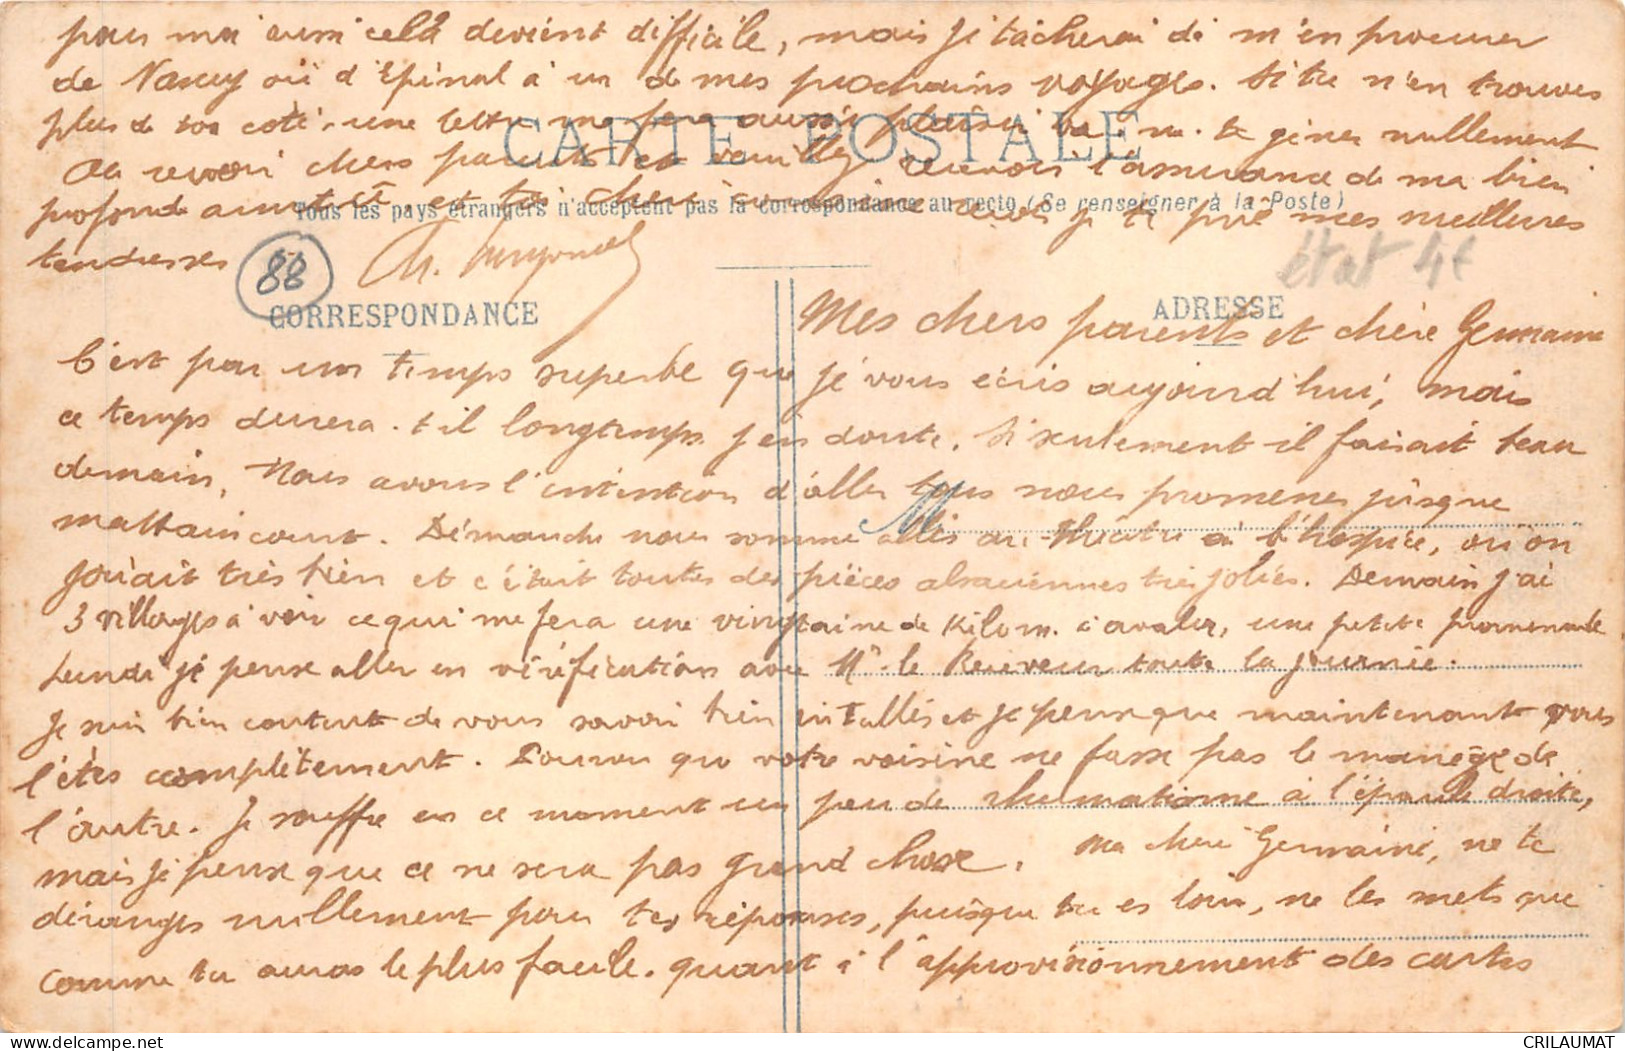 pour moi aussi celà devient difficile, mais je tâcherai de m'en procurer
de Nancy où d'Epinal à un de mes prochains voyages. Si tu n'en trouves
plus de ton coté, une lettre me fera aussi plaisir va, ne te gênes nullement
CARTE POSTALE
Au revoir chers parents et recevois l'assurance de ma bien
profonde amitié et toi chère je te prie mes meilleures
Tous les pays étrangers n'acceptent pas la correspondance au recto (Se renseigner à la Poste)
tendresses
88
état 4€
CORRESPONDANCE
ADRESSE
Mes chers parents et chère Germaine
C'est par un temps superbe que je vous écris aujourd'hui, mais
ce temps durera-t-il longtemps j'en doute. Si seulement il faisait beau
demain, Nous avons l'intention d'aller tous nous promener jusque
M
mattaincourt. Dimanche nous somme allés au théâtre à l'hospice, où on
jouait très bien et c'était toutes des pièces alsaciennes très jolies. Demain j'ai
3 villages à voir ce qui me fera une vingtaine de Kilom. à avaler, une petite promenade
Lundi je pense aller en vérification avec Mr. le Receveur toute la journée.
Je suis bien content de vous savoir bien installés et je pense que maintenant vous
l'êtes complètement. Pourvu que votre voisine ne fasse pas le manège de
l'autre. Je souffre en ce moment un peu de rhumatisme à l'épaule droite,
mais je pense que ce ne sera pas grand chose. Ma chère Germaine, ne te
déranges nullement pour tes réponses, puisque tu es loin, ne les mets que
comme tu auras le plus facile. quant à l'approvisionnement des cartes
CRILAUMAT